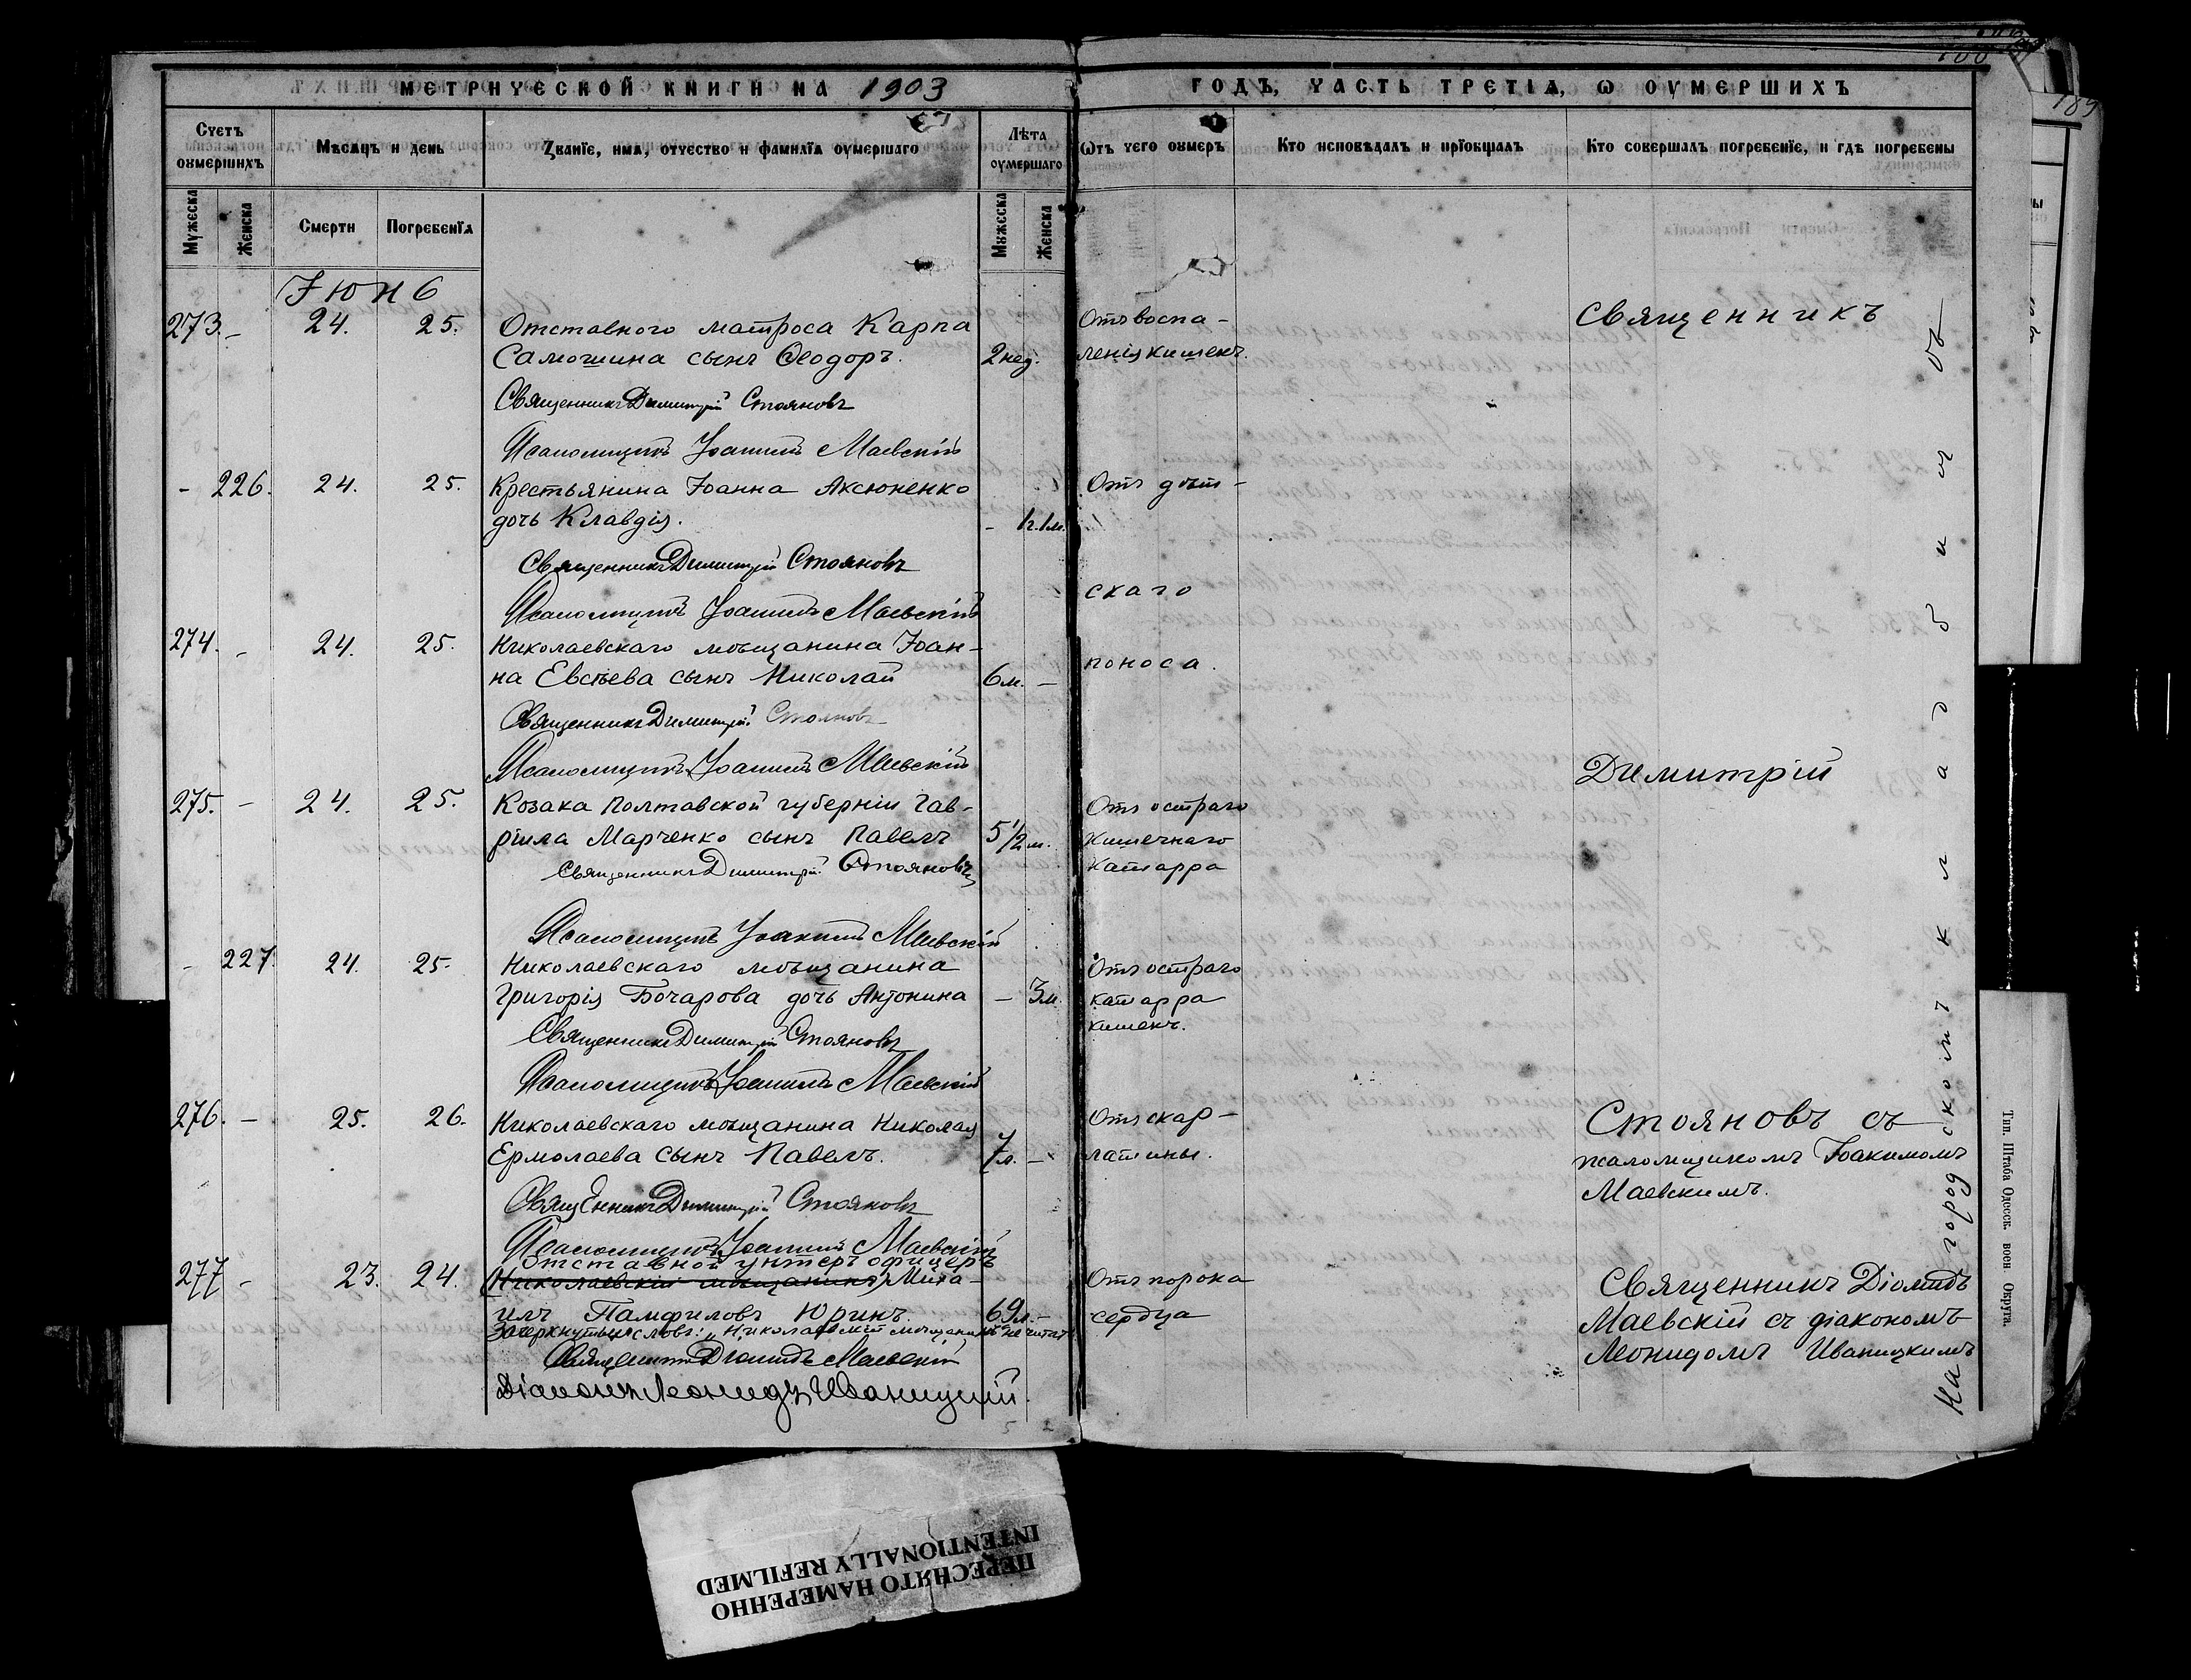 МЕТРИЧЕСКОЙ КНИГИ НА 1903
ГОДЪ, ЧАСТЬ ТРЕТІѦ, Ѡ ОУМЕРШИХЪ
Счетъ оумершихъ
Мѣсѧцъ и день
Званїе, имѧ, отчество и фамилїѧ оумершаго
Лѣта оумершаго
Ѿтъ чего оумеръ
Кто исповѣдалъ и прїобщалъ
Кто совершалъ погребенїе, и гдѣ погребены
Мужеска
Женска
Смерти
Погребенїѧ
Мужеска
Женска
Іюнь
273. - 24. 25. Отставного матроса Карпа
Самошина сынъ Ѳеодоръ. 2 нед.
Отъ воспа-
ленія кишекъ.
Священникъ Димитрій Стояновъ
Псаломщикъ Іоакимъ Маевскій
- 226. 24. 25. Крестьянина Іоанна Аксюненко
дочь Клавдія. - 1г. 1м.
Отъ дѣт-
Священникъ Димитрій Стояновъ
скаго
Псаломщикъ Іоакимъ Маевскій
274. - 24. 25. Николаевскаго мѣщанина Іоан-
на Евсѣева сынъ Николай 6м. -
поноса.
Священникъ Димитрій Стояновъ
Псаломщикъ Іоакимъ Маевскій
275. - 24. 25. Козака Полтавской губерніи Гав-
ріила Марченко сынъ Павелъ 5 1/2 м.
Отъ остраго
кишечнаго
катарра
Священникъ Димитрій Стояновъ
Псаломщикъ Іоакимъ Маевскій
- 227. 24. 25. Николаевскаго мѣщанина
Григорія Бочарова дочь Антонина - 3м.
Отъ остраго
катарра
кишекъ.
Священникъ Димитрій Стояновъ
Псаломщикъ Іоакимъ Маевскій
276. - 25. 26. Николаевскаго мѣщанина Николая
Ермолаева сынъ Павелъ. 7л. -
Отъ скар-
латины.
Священникъ Димитрій Стояновъ
Псаломщикъ Іоакимъ Маевскій
Отставной унтеръ офицеръ
277 - 23. 24. (Николаевскій мѣщанинъ) Миха-
илъ Памфиловъ Юринъ. 69л. -
Отъ порока
сердца
Зачеркнутыхъ словъ: „Николаевскій мѣщанинъ" не читать
Священникъ Діомидъ Маевскій
Діаконъ Леонидъ Иваницкій.
Священникъ
Димитрій
Стояновъ съ
псаломщикомъ Іоакимомъ
Маевскимъ.
Священникъ Діомидъ
Маевскій съ діакономъ
Леонидомъ Иваницкимъ
На городскомъ кладбищѣ
Тип. Штаба Одесск. воен. Округа.
189
ПЕРЕСНЯТО НАМЕРЕННО
INTENTIONALLY REFILMED